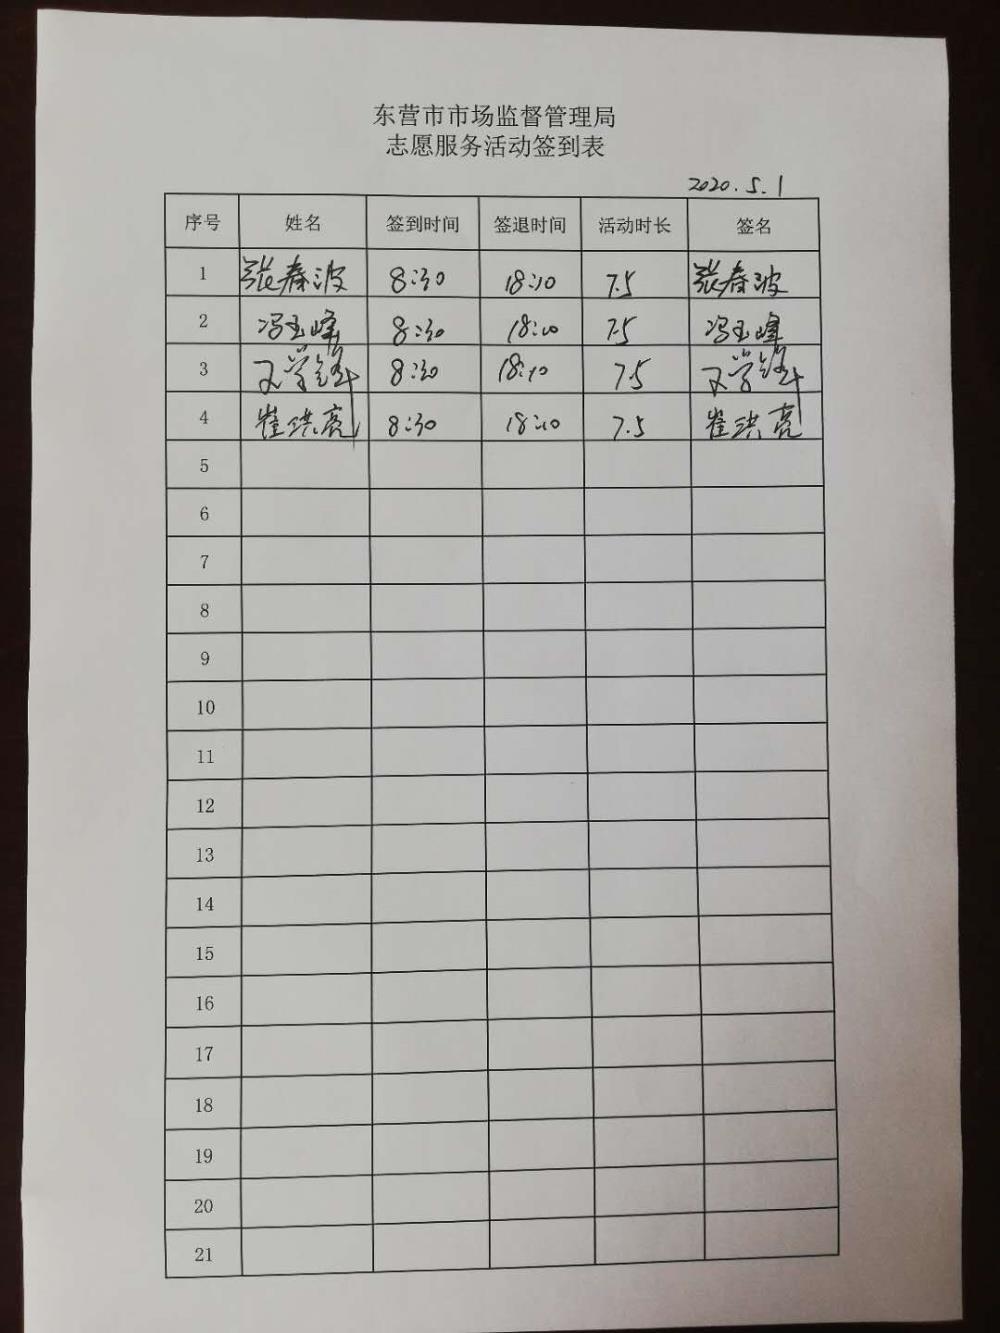 东营市市场监督管理局
志愿服务活动签到表
2020.5.1
序号 姓名 签到时间 签退时间 活动时长 签名
1 张春波 8:30 18:10 7.5 张春波
2 冯玉峰 8:30 18:10 7.5 冯玉峰
3 8:30 18:10 7.5
4 崔洪亮 8:30 18:10 7.5 崔洪亮
5
6
7
8
9
10
11
12
13
14
15
16
17
18
19
20
21